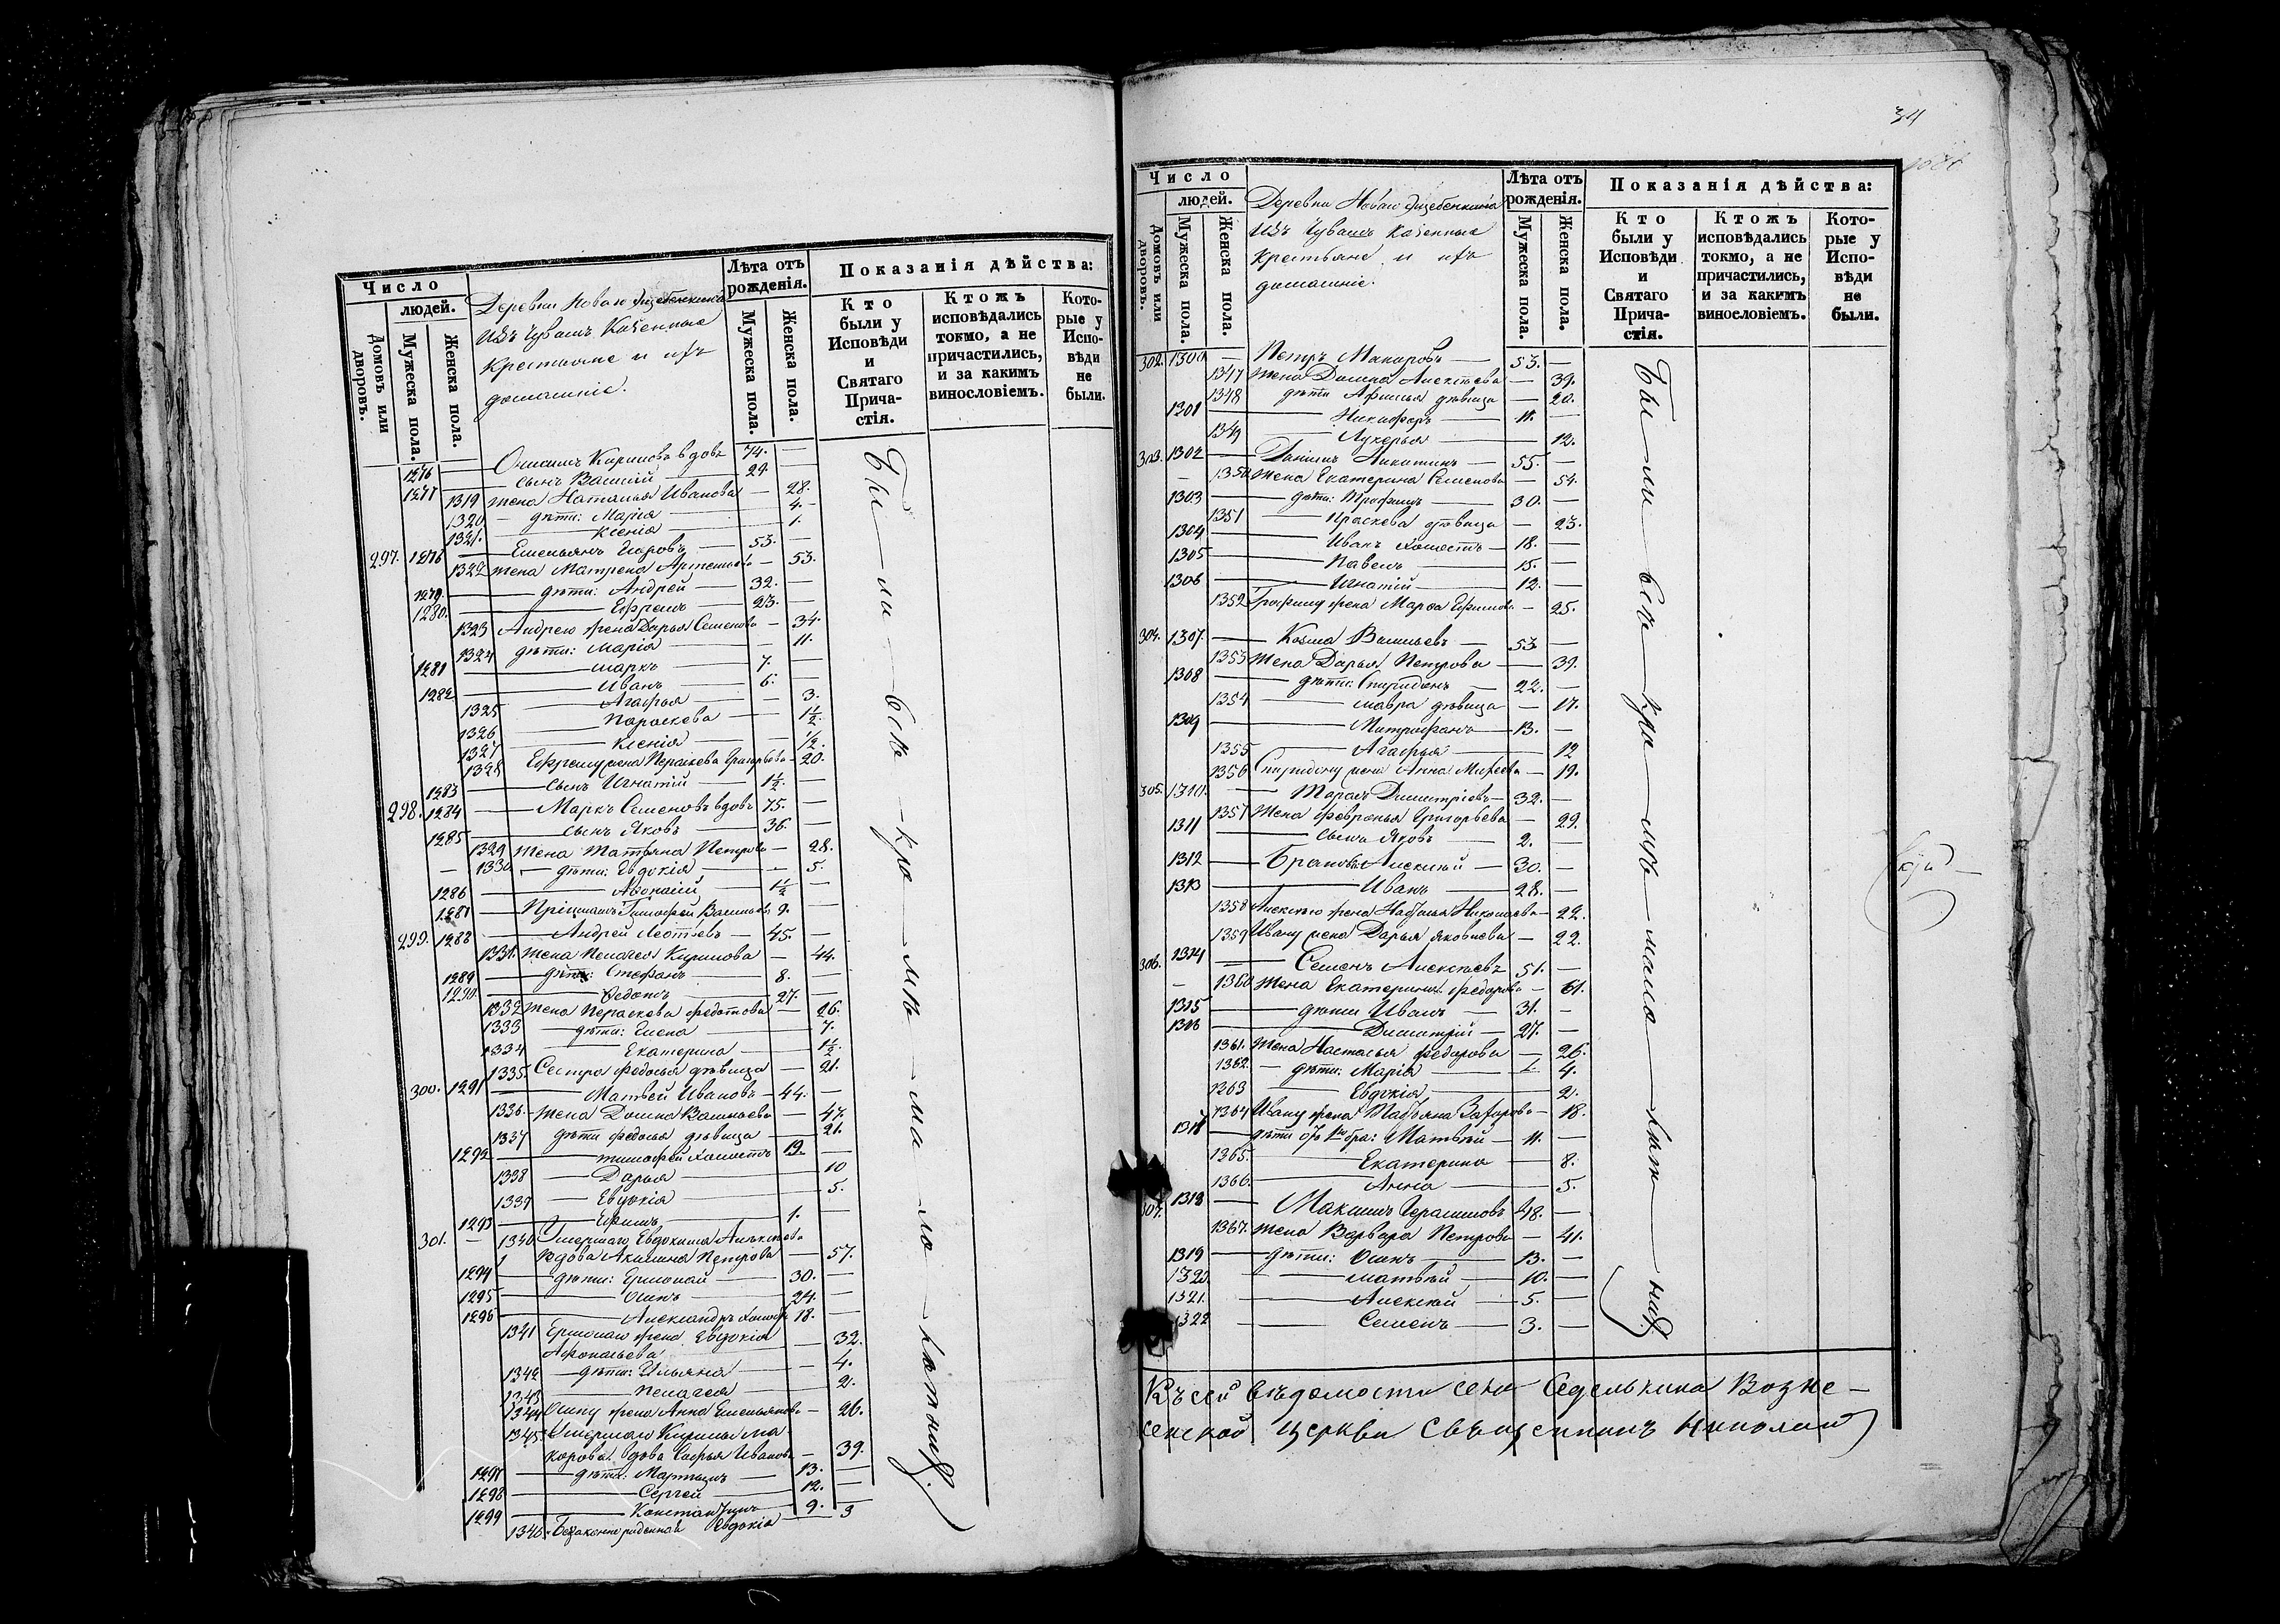 Число
людей.
Домовъ или дворовъ.
Мужеска пола.
Женска пола.
Деревни Новаго
Изъ Чувашъ Казенные
Крестьяне и ихъ
домашніе.
Лѣта отъ рожденія.
Мужеска пола.
Женска пола.
Показанія дѣйства:
Кто были у Исповѣди и Святаго Прича-стія.
Ктожъ исповѣдались токмо, а не причастились, и за какимъ винословіемъ.
Кото-рые у Испо-вѣди не были.
1276 — Онисимъ Кириловъ вдовъ 74. —
1277 — сынъ Василій — 29. —
1319 жена Наталья Иванова — 28.
1320 — дѣти: Марія — 4. —
1321. — Ксенія — 1.
297. 1278 — Емельянъ — 53. —
1322 жена Матрена — 53.
1279. — дѣти: Андрей — 32. —
1280. — Ефремъ — 23. —
1323 Андрею жена Дарья Семенова — 34.
1324 дѣти: Марія — 11.
1281 — Маркъ — 7. —
1282 — Иванъ — 6. —
1325 — Агафья — 3.
1326 — Параскева — 1½.
1327 — Ксенія — ½.
1328 Ефрему жена Параскева Григорьева — 20.
1283 — сынъ Игнатій — 1½. —
298. 1284 — Маркъ Семеновъ вдовъ 75. —
1285 — сынъ Яковъ — 36. —
1329 жена Татьяна Петрова — 28.
— 1330 — дѣти: Евдокія — 5.
1286 — Аѳонасій — 1½ —
1287 — Пріимышъ Тимофей Васильевъ 9. —
299. 1288 — Андрей Леотіевъ — 45. —
1331. жена Пелагея Кирилова — 44.
1289 — дѣти: Стефанъ — 8. —
1290. — Ѳедотъ — 27. —
1332 жена Параскева Федотова — 26.
1333 — дѣти: Елена — 7.
1334 — Екатерина — 1½.
1335. Сестра Федосья дѣвица — 21.
300. 1291 — Матвей Ивановъ — 44. —
1336. жена Домна Васильева — 47.
1337 дѣти Федосья дѣвица — 21.
1292 — Тимофей холостъ 19. —
1338 — Дарья — 10
1339 — Евдокія — 5.
1293 — Ефимъ — 1. —
301. — 1340 Умершаго Евдокима Алексѣева
вдова Акилина Петрова — 57.
1294 — дѣти: Ермолай — 30. —
1295 — Осипъ — 24. —
1296 — Александръ холостъ 18. —
1341 Ермолаю жена Евдокія
Афонасьева — 32.
1342 — дѣти: Ульяна — 4.
1343 — Пелагея — 2.
1344 Осипу жена Анна Емельянова — 26.
1345 Умершаго Кирилы Ма-
карова вдова Софья Иванова — 39.
1297 — дѣти: Мартынъ — 13. —
1298 — Сергей — 12. —
1299 — Константинъ — 9. —
1346. Беззаконнорожденная Евдокія — 3
Бы — ли — всѣ — кро — мѣ — ма — ло — лѣтнихъ.
34
Число
людей.
Домовъ или дворовъ.
Мужеска пола.
Женска пола.
Деревни Новаго
Изъ Чувашъ Казенные
Крестьяне и ихъ
домашніе.
Лѣта отъ рожденія.
Мужеска пола.
Женска пола.
Показанія дѣйства:
Кто были у Исповѣди и Святаго Прича-стія.
Ктожъ исповѣдались токмо, а не причастились, и за какимъ винословіемъ.
Кото-рые у Испо-вѣди не были.
302. 1300 — Петръ Макаровъ — 53. —
1347 жена Домна Алексѣева — 39.
1348 дѣти Афимья дѣвица — 20.
1301 — Никифоръ — 11. —
1349 — Лукерья — 12.
303. 1302 — Данилъ Никитинъ — 55. —
— 1350 жена Екатерина Семенова — 54.
1303 — дѣти: Трофимъ — 30. —
1351 — Праскева дѣвица — 23.
1304 — Иванъ холостъ — 18. —
1305 — Павелъ — 15. —
1306 — Игнатій — 12. —
1352 Трофиму жена Марфа Ефимова — 25.
304. 1307. — Козма Васильевъ — 53 —
1353 жена Дарья Петрова — 39.
1308 — дѣти: Спиридонъ — 22. —
1354 — Мавра дѣвица — 17.
1309 — Митрофанъ — 13. —
1355 — Агафья — 12
1356 Спиридону жена Анна — 19.
305. 1310. — Тарасъ Димитріевъ — 32. —
1357 жена Февронья Григорьева — 29.
1311 — сынъ Яковъ — 2. —
1312 — Братовья: Алексѣй — 30. —
1313 — Иванъ — 28. —
1358 Алексѣю жена Наталья Николаева — 22.
1359 Ивану жена Дарья Яковлева — 22.
306. 1314 — Семенъ Алексѣевъ 51. —
— 1360 жена Екатерина Федорова — 61.
1315 — дѣти Иванъ — 31. —
1316 — Димитрій — 27. —
1361. жена Настасья Федорова — 26.
1362. — дѣти: Марія — 4.
1363 — Евдокія — 2.
1364 Ивану жена Татьяна Захарова — 18.
1317 — дѣти отъ 1го бра: Матвѣй — 11. —
1365. — Екатерина — 8.
1366. — Анна — 5.
307. 1318 — Максимъ Герасимовъ 48. —
1367. жена Варвара Петрова — 41.
1319 — дѣти: Осипъ — 13. —
1320. — Матвѣй — 10. —
1321. — Алексѣй — 5. —
1322 — Семенъ — 3. —
Бы — ли — всѣ — кро — мѣ — мало — лѣт — нихъ
Къ сей вѣдомости села Седелькина Возне-
сенской церкви Священникъ Николай